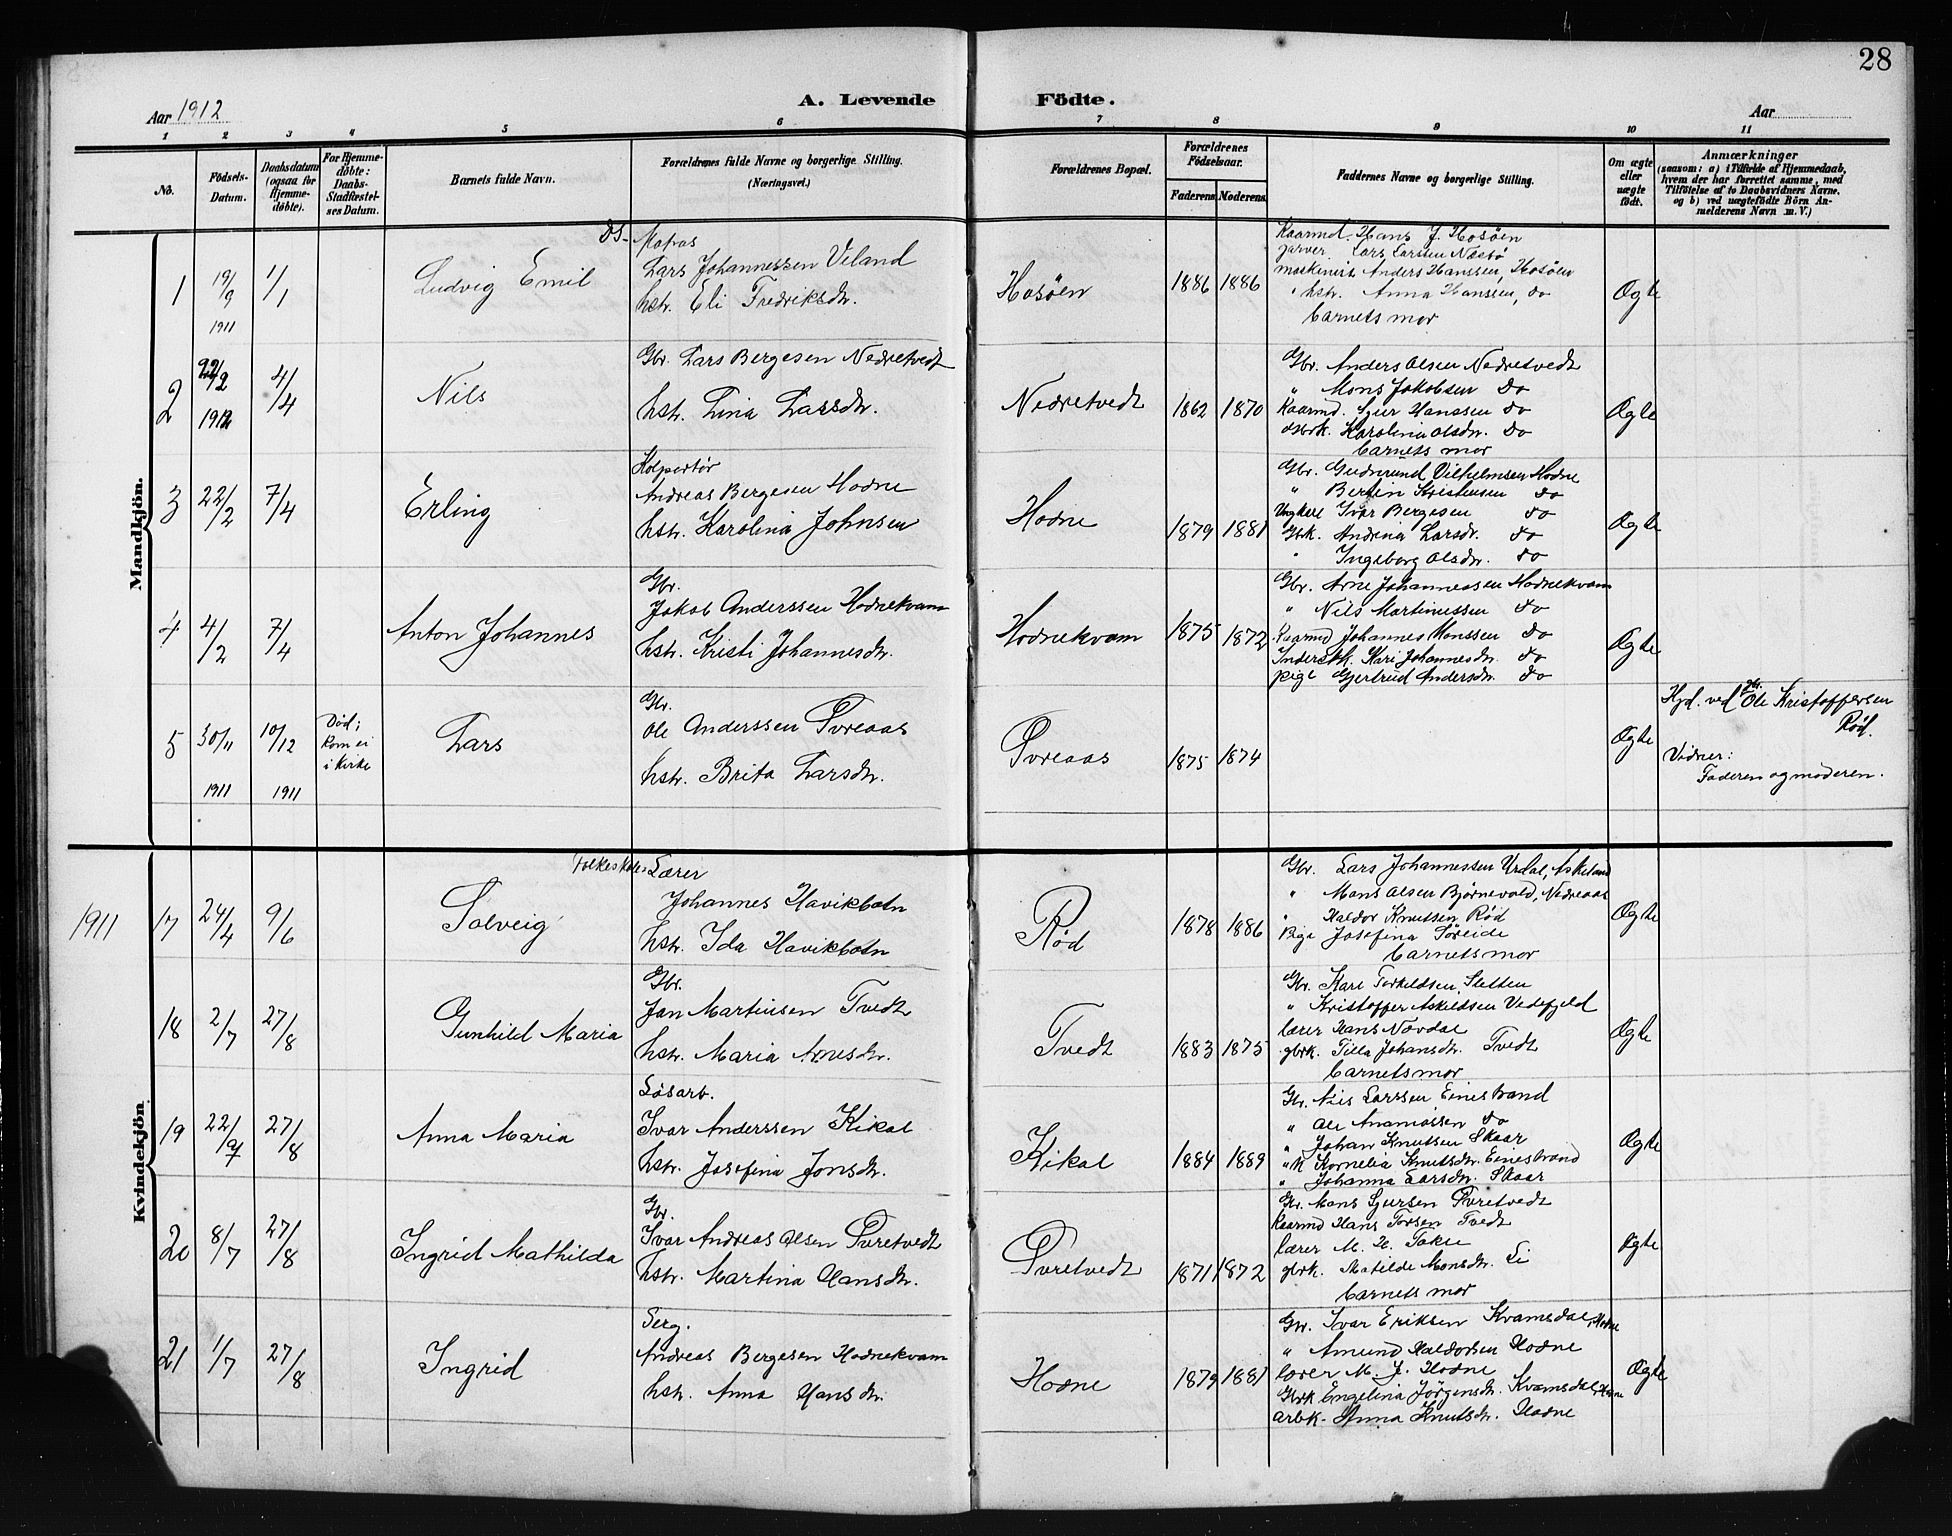 28
Aar 1912
A. Levende Födte.
Aar
1 2 3 4 5 6 7 8 9 10 11
No.
Födsels-Datum.
Daabsdatum (ogsaa for Hjemme-döbte).
For Hjemme-döbte: Daabs-Stadfæstel-ses Datum.
Barnets fulde Navn.
Forældrenes fulde Navne og borgerlige Stilling.
(Næringsvei.)
Forældrenes Bopæl.
Forældrenes Födselsaar.
Faderens Moderens
Faddernes Navne og borgerlige Stilling.
Om ægte eller uægte födt.
Anmærkninger
(saasom: a) i Tilfælde af Hjemmedaab,
hvem der har forrettet samme, med
Tilföielse af to Daabsvidners Navne.
og b) ved uægtefödte Börn An-
melderens Navn m. V.)
Mandkjön.
1 19/9 1911 1/1
Ludvig Emil
Ds. Matros
Lars Johannessen Veland
hstr. Eli Fredriksdr.
Hosöen
1886 1886
Kaarmd. Hans J. Hosöen
garver Lars Larsen Næsbö
maskinist Anders Hanssen, Hosöen
hstr. Anna Hanssen, do
barnets mor
Ægte
2 22/2 1912 4/4
Nils
Gbr. Lars Bergesen Nedretvedt
hstr. Lina Larsdr.
Nedretvedt
1862 1870
Gbr. Anders Olsen Nedretvedt
" Mons Jakobsen do
Kaarmd. Sjur Hanssen do
Gbrk. Karolina Olsdr. do
barnets mor
Ægte
3 22/2 7/4
Erling
Kolportør
Andreas Bergesen Hodne
hstr. Karolina Johnsen
Hodne
1879 1881
Gbr. Gudmund Vilhelmsen Hodne
" Bertin Kristensen do
Ungkarl Ivar Bergesen do
Gbrk. Andrina Larsdr. do
" Ingeborg Olsdr. do
Ægte
4 4/2 7/4
Anton Johannes
Gbr.
Jakob Anderssen Hodnekvam
hstr. Kristi Johannesdr.
Hodnekvam
1875 1872
Gbr. Arne Johannessen Hodnekvam
" Nils Martinussen do
Kaarmd Johannes Monssen do
Inderstk. Kari Johannesdr. do
pige Gjertrud Andersdr. do
Ægte
5 30/11 1911 10/12 1911
Död; kom ei i kirke
Lars
Gbr.
Ole Anderssen Øvreaas
hstr. Brita Larsdr.
Øvreaas
1875 1874
Ægte
Hjd. ved gbr. Ole Kristoffersen
Röd.
Vidner:
Faderen og moderen.
Kvindekjön
1911
17 24/4 9/6
Solveig
Folkeskole Lærer
Johannes Havikbotn
hstr. Ida Havikbotn
Röd
1878 1886
Gbr. Lars Johannessen Urdal, Askeland
" Mons Olsen Bjørnevold, Nedreaas
" Haldor Knutsen Röd
Pige Josefina Söreide
barnets mor
Ægte
18 2/7 27/8
Gunhild Maria
Gbr.
Jan Martinsen Tvedt
hstr. Maria Arnesdr.
Tvedt
1883 1875
Gbr. Kari Torkildsen, Sletten
" Kristoffer Askildsen Vedefjeld
lærer Hans Nævdal
gbrk. Tilla Johansdr. Tvedt
barnets mor
Ægte
19 22/7 27/8
Anna Maria
Løsarb.
Ivar Anderssen Kikal
hstr. Josefina Jonsdr.
Kikal
1884 1889
Gbr. Nils Larssen Einestrand
" Ole Ananiassen do
" Johan Knutsen Skaar
"k Kornelia Knutsdr. Einestrand
" Johanna Larsdr. Skaar
Ægte
20 8/7 27/8
Ingrid Mathilda
Gbr.
Ivar Andreas Olsen Øvretvedt
hstr. Martina Hansdr.
Øvretvedt
1871 1872
Gbr. Mons Sjursen Øvretvedt
Kaarmd Hans Torsen Tvedt
lærer M. H. Takle
gbrk. Matilde Monsdr. Li
barnets mor
Ægte
21 1/7 27/8
Ingrid
Serg.
Andreas Bergesen Hodnekvam
hstr. Anna Hansdr.
Hodne
1879 1881
Gbr. Ivar Eriksen Kvamsdal, Hodne
" Amund Haldorsen Hodne
lærer M. J. Hodne
Gbrk Engelina Jörgensdr. Kvamsdal, Hodne
arbk. Anna Knutsdr. Hodne
Ægte